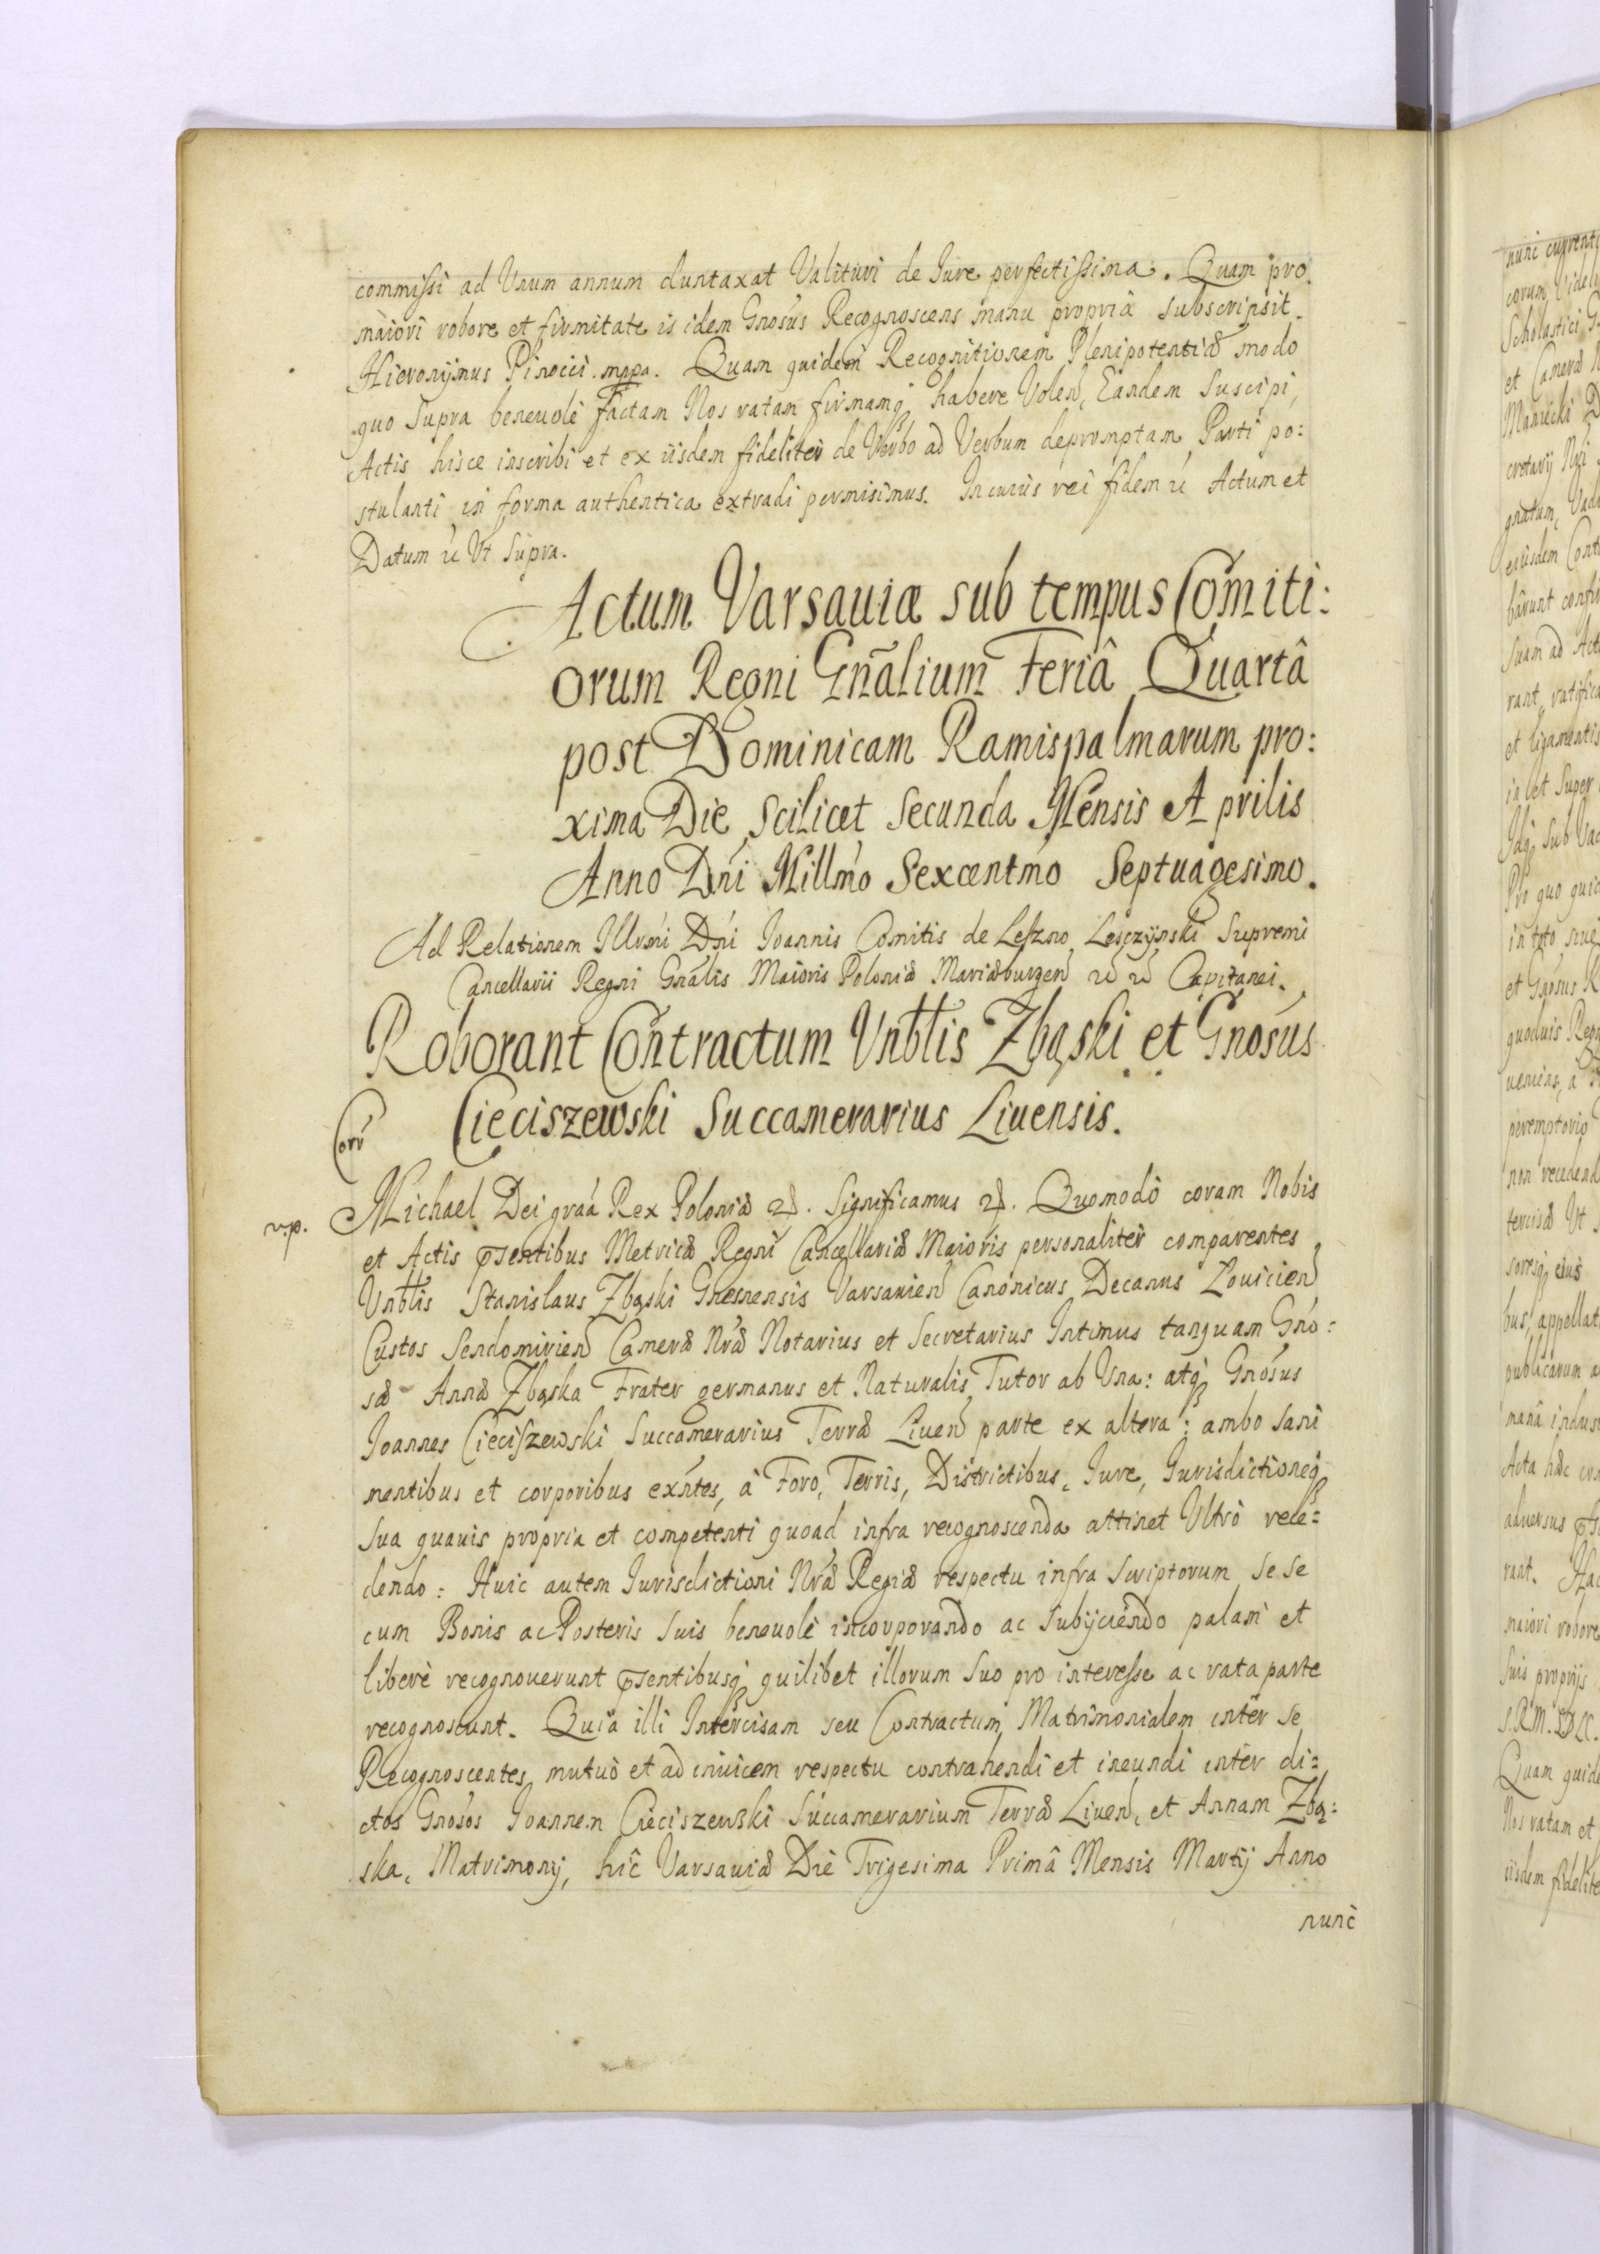 commissi ad Unum annum duntaxat Valituri de Jure perfectissima. Quam pro
maiori robore et firmitate is idem Gnosus Recognoscens manu propria subscripsit.
Hieronymus Pinocci mppa. Quam quidem Recognitionem Plenipotentiæ modo
quo supra beneuolè factam Nos ratam firmamq habere Volen, Eandem Suscipi,
Actis hisce inscribi et ex iisdem fideliter de Verbo ad Verbum depromptam Parti po:
stulanti in forma authentica extradi permisimus. In cuius rei fidem &c Actum et
Datum &c Ut Supra.
Actum Varsauiæ sub tempus Comiti:
orum Regni Gnãlium Feriâ Quartâ
post Dominicam Ramispalmarum pro:
xima Die scilicet Secunda Mensis Aprilis
Anno Dni Millmo Sexcentmo Septuagesimo.
Ad Relationem Illumi Dni Joannis Comitis de Leszno Lesczynski Supremi
Cancellarii Regni Gnãlis Maioris Poloniæ Mariæburgen &c &c Capitanei.
Roborant Contractum Vnbtlis Zbąski et Gnosus
Cieciszewski Succamerarius Liuensis.
Corr
Michael Dei graa Rex Poloniæ &. Significamus &. Quomodo coram Nobis
v.p.
et Actis psentibus Metricæ Regni Cancellariæ Maioris personaliter comparentes
Vnbtlis Stanislaus Zbąski Gnesnensis Varsauien Canonicus Decanus Louicien
Custos Sendomirien Cameræ Nræ Notarius et Secretarius Intimus tanquam Gno:
sæ Annæ Zbąska Frater germanus et Naturalis Tutor ab Una: atq Gnosus
Joannes Cieciszewski Succamerarius Terræ Liuen parte ex altera: ambo sani
mentibus et corporibus exntes, à Foro, Terris, Districtibus, Jure, Jurisdictioneq
sua quauis propria et competenti quoad infra recognoscenda attinet Ultrò rece:
dendo: Huic autem Jurisdictioni Nræ Regiæ respectu infra Scriptorum Se se
cum Bonis ac Posteris suis beneuolè incorporando ac Subijciendo palam et
liberè recognouerunt psentibusq quilibet illorum Suo pro interesse ac rata parte
recognoscunt. Quia illi Intercisam seu Contractum Matrimonialem inter se
Recognoscentes mutuò et ad inuicem respectu contrahendi et ineundi inter di:
ctos Gnosos Joannem Cieciszewski Succamerarium Terræ Liuen, et Annam Zbą:
ska, Matrimonij, hic Varsauiæ Die Trigesima Primâ Mensis Martij Anno
nunc